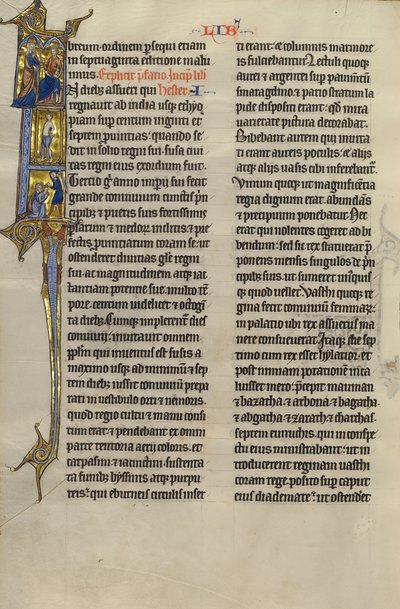 LIB
breum ordinem persequi etiam
in septuaginta editione malui
mus. Explicit pfatio. Incip lib
In dieb3 assueri qui Hester. I
regnauit ab india usq3 ethyo
piam sup centum uiginti et
septem puintias: quando se
dit in solio regni sui. susa ciui
tas regni eius exordium fuit.
Tertio g anno impii sui fecit
grande conuiuium cunctis pn
cipib3 7 pueris suis fortissimis
psarum 7 medor inclitis 7 pre
fectis puintiarum coram se: ut
ostenderet diuitias glie regni
sui. ac magnitudinem atq3 iac
tantiam potentie sue. multo tem
pore. centum uidelicet 7 octogi
ta dieb3. Cumq3 implerentur dies
conuiuii: inuitauit omnem
pplm qui inuentus est susis a
maximo usq3 ad minimum 7 sep
tem dieb3 iussit conuiuium prepa
rari in uestibulo orti 7 nemoris.
quod regio cultu 7 manu consi
tum erat. 7 pendebant ex omni
parte tentoria aerii coloris. et
carpasini. 7 iacinctini. sustenta
ta funib3 byssinis atq3 purpu
reis. qui eburneis circulis inser
ti erant: 7 columnis marmore
is fulciebantur. Lectuli quoq3
aurei 7 argentei sup pauimentum
smaragdino 7 pario stratum la
pide dispositi erant: qd mira
uarietate pictura decorabat.
Bibebant autem qui inuita
ti erant aureis poculis. 7 aliis
atq3 aliis uasis cibi inferebant.
Vinum quoq3 ut magnificentia
regia dignum erat. abundans
7 precipuum ponebatur. Nec
erat qui nolentes cogeret ad bi
bendum: sed sic rex statuerat p
ponens mensis singulos de prin
cipib3 suis. ut sumeret unusquis
q3 quod uellet. Vasthi quoq3 re
gina fecit conuiuium feminar
in palatio ubi rex assuerus ma
nere consueuerat. Itaq3 die sep
timo cum rex esset hylarior. et
post nimiam potationem inca
luisset mero: precepit mauman
7 bazatha. 7 arbona. 7 bagatha.
7 abgatha. 7 zarath. 7 charchas.
septem eunuchis. qui in conspe
ctu eius ministrabant: ut in
troducerent reginam uasthi
coram rege. posito sup caput
eius diademate: ut ostenderet